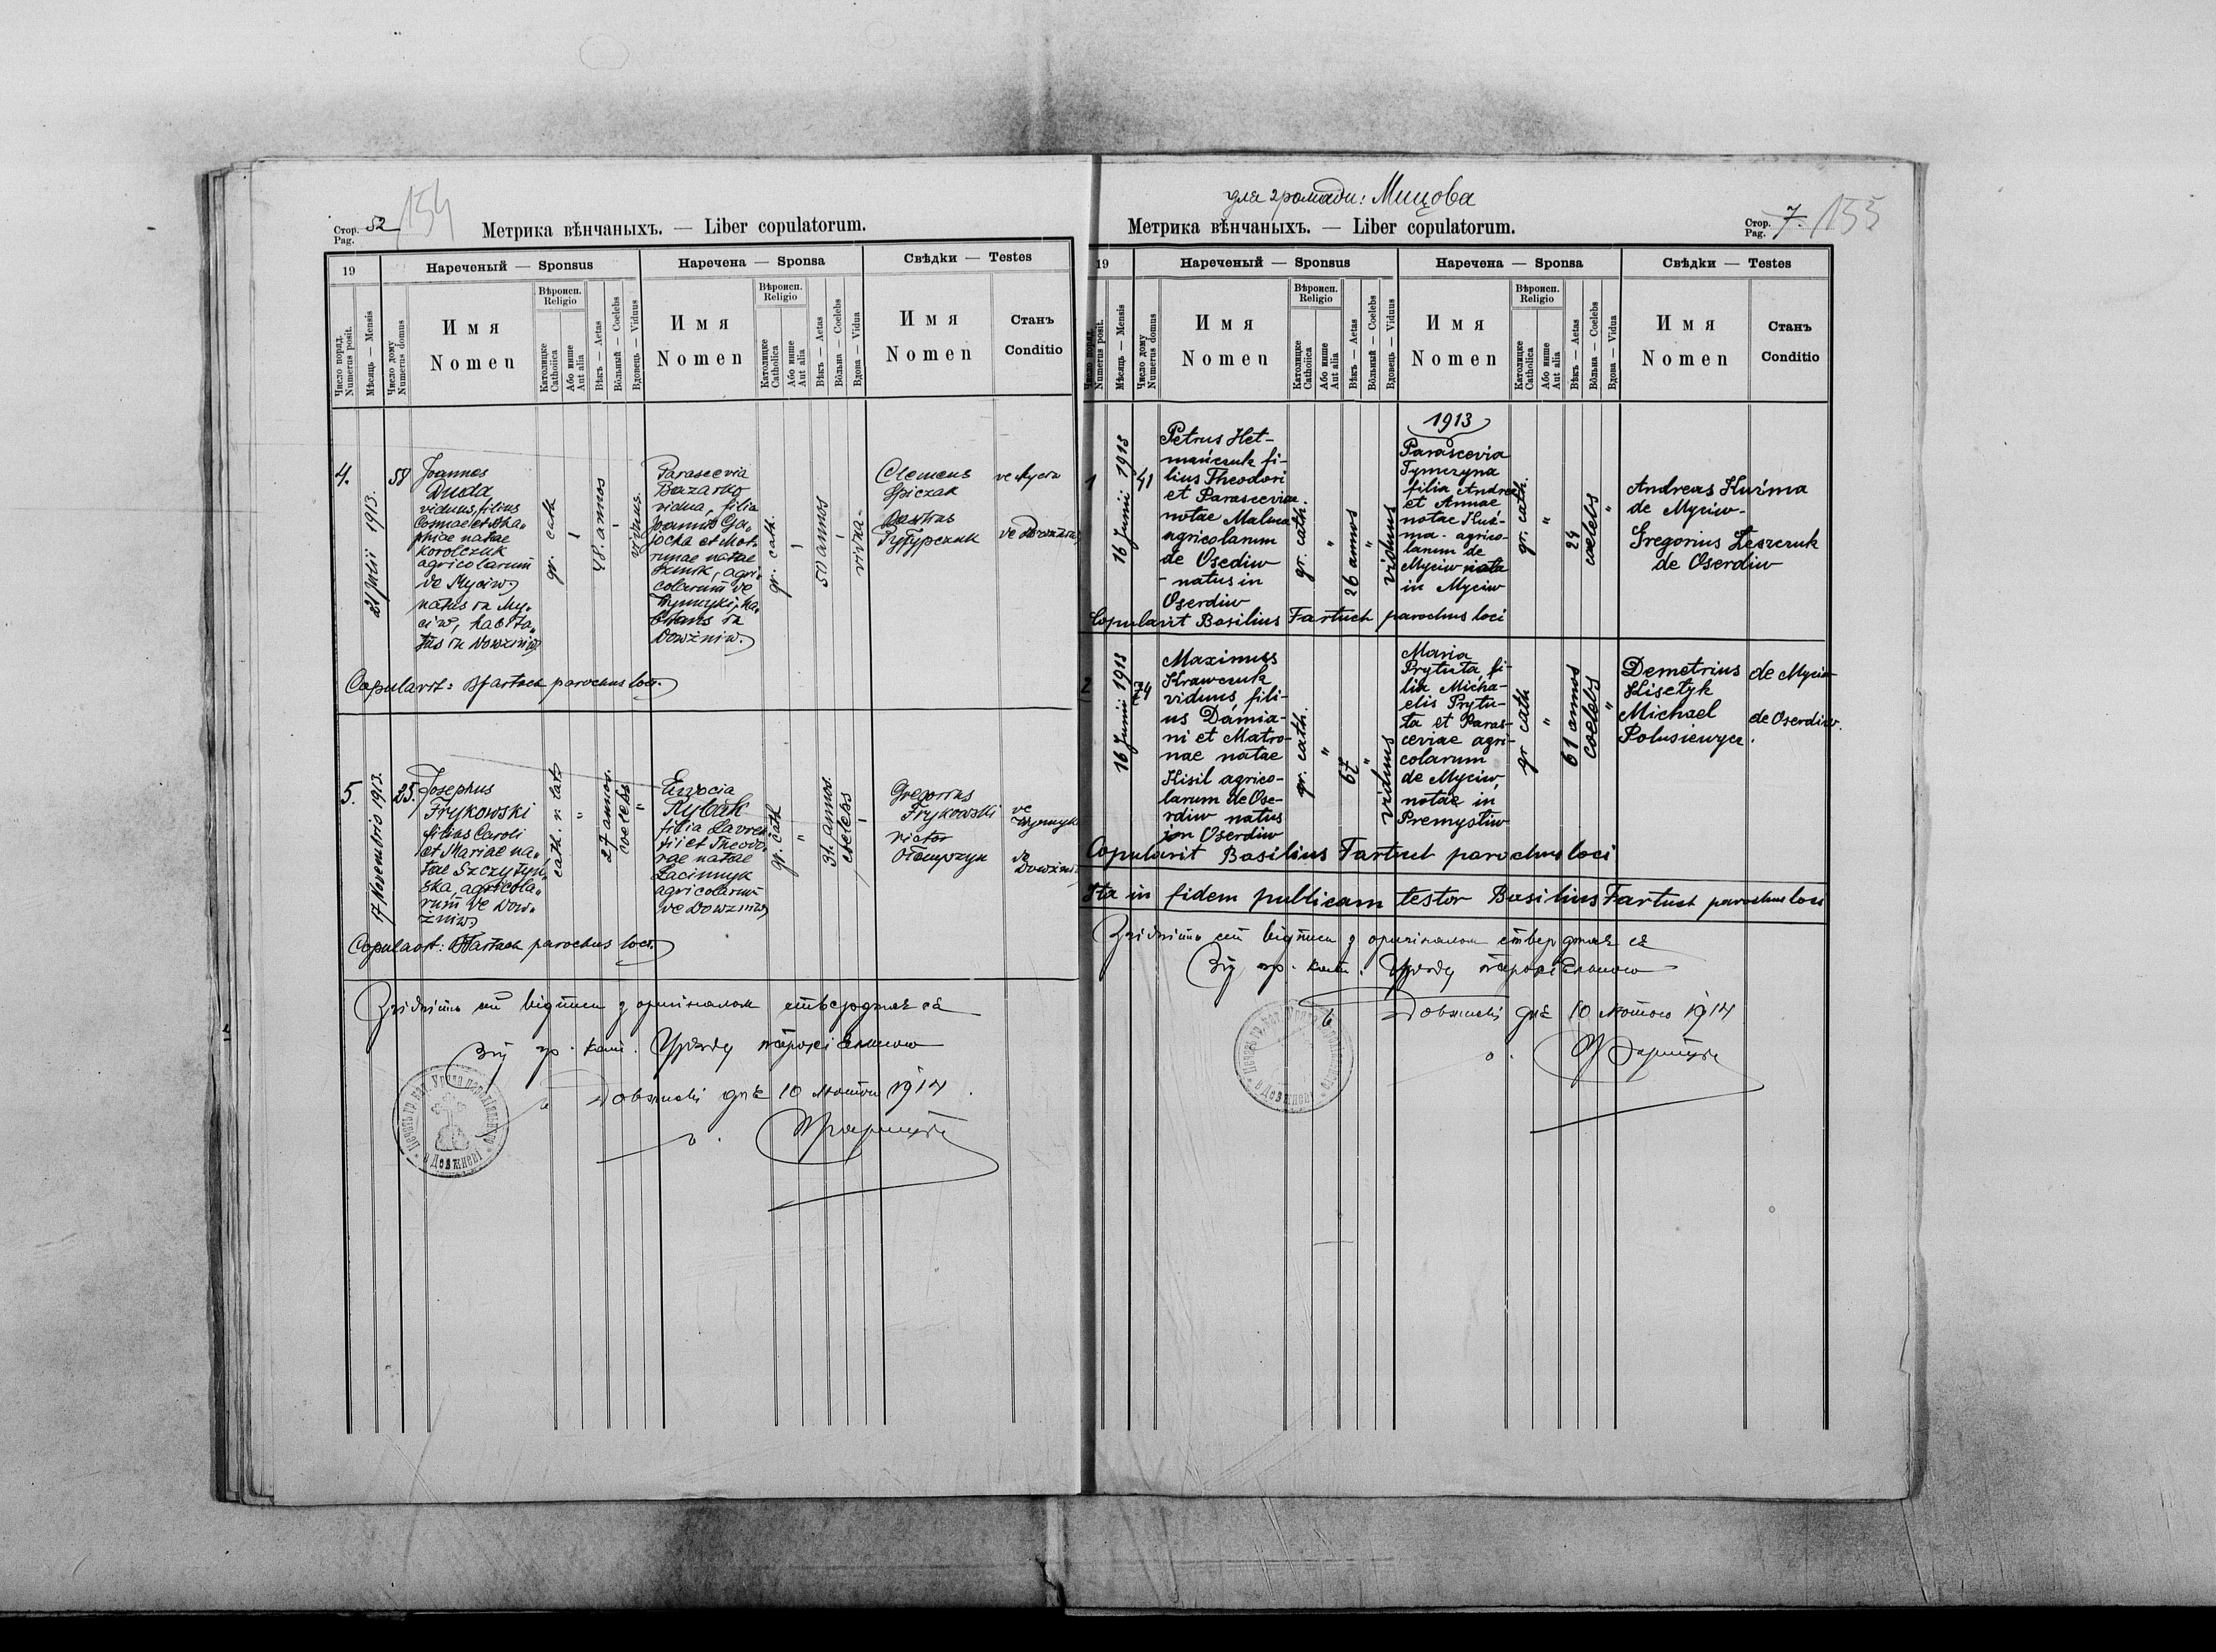 Стор. Pag. 52
154
Метрика вѣнчаныхъ. — Liber copulatorum.
19
Нареченый — Sponsus
Наречена — Sponsa
Свѣдки — Testes
Число поряд. Numerus posit.
Мѣсяць — Mensis
Число дому Numerus domus
Имя
Nomen
Вѣроисп. Religio
Католицке Catholica
Або инше Aut alia
Вѣкъ — Aetas
Вôльный — Coelebs
Вдовець — Viduus
Имя
Nomen
Вѣроисп. Religio
Католицке Catholica
Або инше Aut alia
Вѣкъ — Aetas
Вôльна — Coelebs
Вдова — Vidua
Имя
Nomen
Станъ
Conditio
4.
21 Julii 1913.
58
Joannes
Duda
viduus, filius
Cosmae et Aga„
phiae natae
Korolczuk
agricolarum
de Myciw,
natus in My„
ciw, habita„
tus in Dowzniw
gr. cath
48. annos
viduus.
Parascevia
Bazarko
vidua, filia
Joannis Ga„
jocha et Mat„
runae natae
agri„
colarum de
in
Dowzniw.
gr. cath.
50 annos
vidua
Clemens
Spiczak
de Myciw
de Dowzniw
Copulavit: BFartuch parochus loci.
5.
17 Novembris 1913.
25.
Josephus
Frykowski
filius Caroli
et Mariae na„
tae Szczyty„
ska, agricola„
rum de Dow„
zniw
cath. r. lat.
„
27 annos.
coelebs
„
Eudocia
Rybak
filia Lavren„
tii et Theodo„
rae natae
agricolarum
de Dowzniw
gr. cath
„
31. annos.
coelebs
Gregorius
Frykowski
Victor
de
de
Dowzniw
Copulavit: BFartuch parochus loci.
Згідність сеї відписи з оріґіналом стверджає ся
Від гр. кат. Уряду парохіяльного
в Довжневі дня 10 лютого 1914
для громади: Мицова
Метрика вѣнчаныхъ. — Liber copulatorum.
Стор. Pag. 7.
155
19
Нареченый — Sponsus
Наречена — Sponsa
Свѣдки — Testes
Число поряд. Numerus posit.
Мѣсяць — Mensis
Число дому Numerus domus
Имя
Nomen
Вѣроисп. Religio
Католицке Catholica
Або инше Aut alia
Вѣкъ — Aetas
Вôльный — Coelebs
Вдовець — Viduus
Имя
Nomen
Вѣроисп. Religio
Католицке Catholica
Або инше Aut alia
Вѣкъ — Aetas
Вôльна — Coelebs
Вдова — Vidua
Имя
Nomen
Станъ
Conditio
1913
1
16 Junii 1913
41
Petrus Het-
mańczuk fi-
lius Theodori
et Parasceviae
notae Malucha
agricolarum
de Osediw
- natus in
Oserdiw
gr. cath.
„
26 annos
„
viduus
Parascevia
Tymczyna
filia Andreae
et Annae
notae Kuź-
ma. agrico-
larum de
Myciw nata
in Myciw
gr. cath.
„
24
coelebs
„
Andreas Kuźma
de Myciw-
Gregorius Leszczuk
de Oserdiw
Copulavit Basilius Fartuch parochus loci
2
16 Junii 1913
74
Maximus
Krawczuk
viduus, fili-
us Damia-
ni et Matro-
nae natae
Kisil agrico-
larum de Ose-
rdiw natus
in Oserdiw
gr. cath.
„
67
„
viduus
Maria
Prytuta, fi-
lia Micha-
elis Prytu-
ta et Paras-
ceviae agri-
colarum
de Myciw,
notae in
Premysliw
gr cath
„
61 annos
coelebs
„
Demetrius
Klisetyk
de Myciw
Michael
Polusiewycz
de Oserdiw.
Copulavit Basilius Fartuch parochus loci
Ita in fidem publicam testor Basilius Fartuch parochus loci
Згідність сеї відписи з оріґіналом стверджає ся
Від гр. кат. Уряду парохіяльного
в Довжневі дня 10 лютого 1914